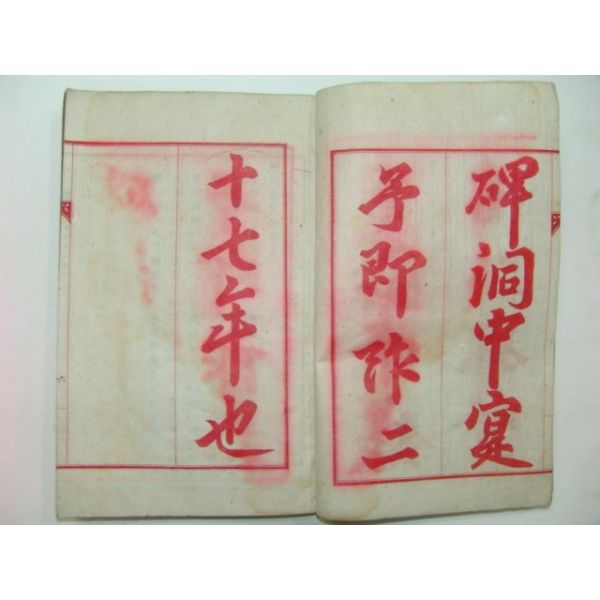 碑洞中寔
予即阼二
十七年也